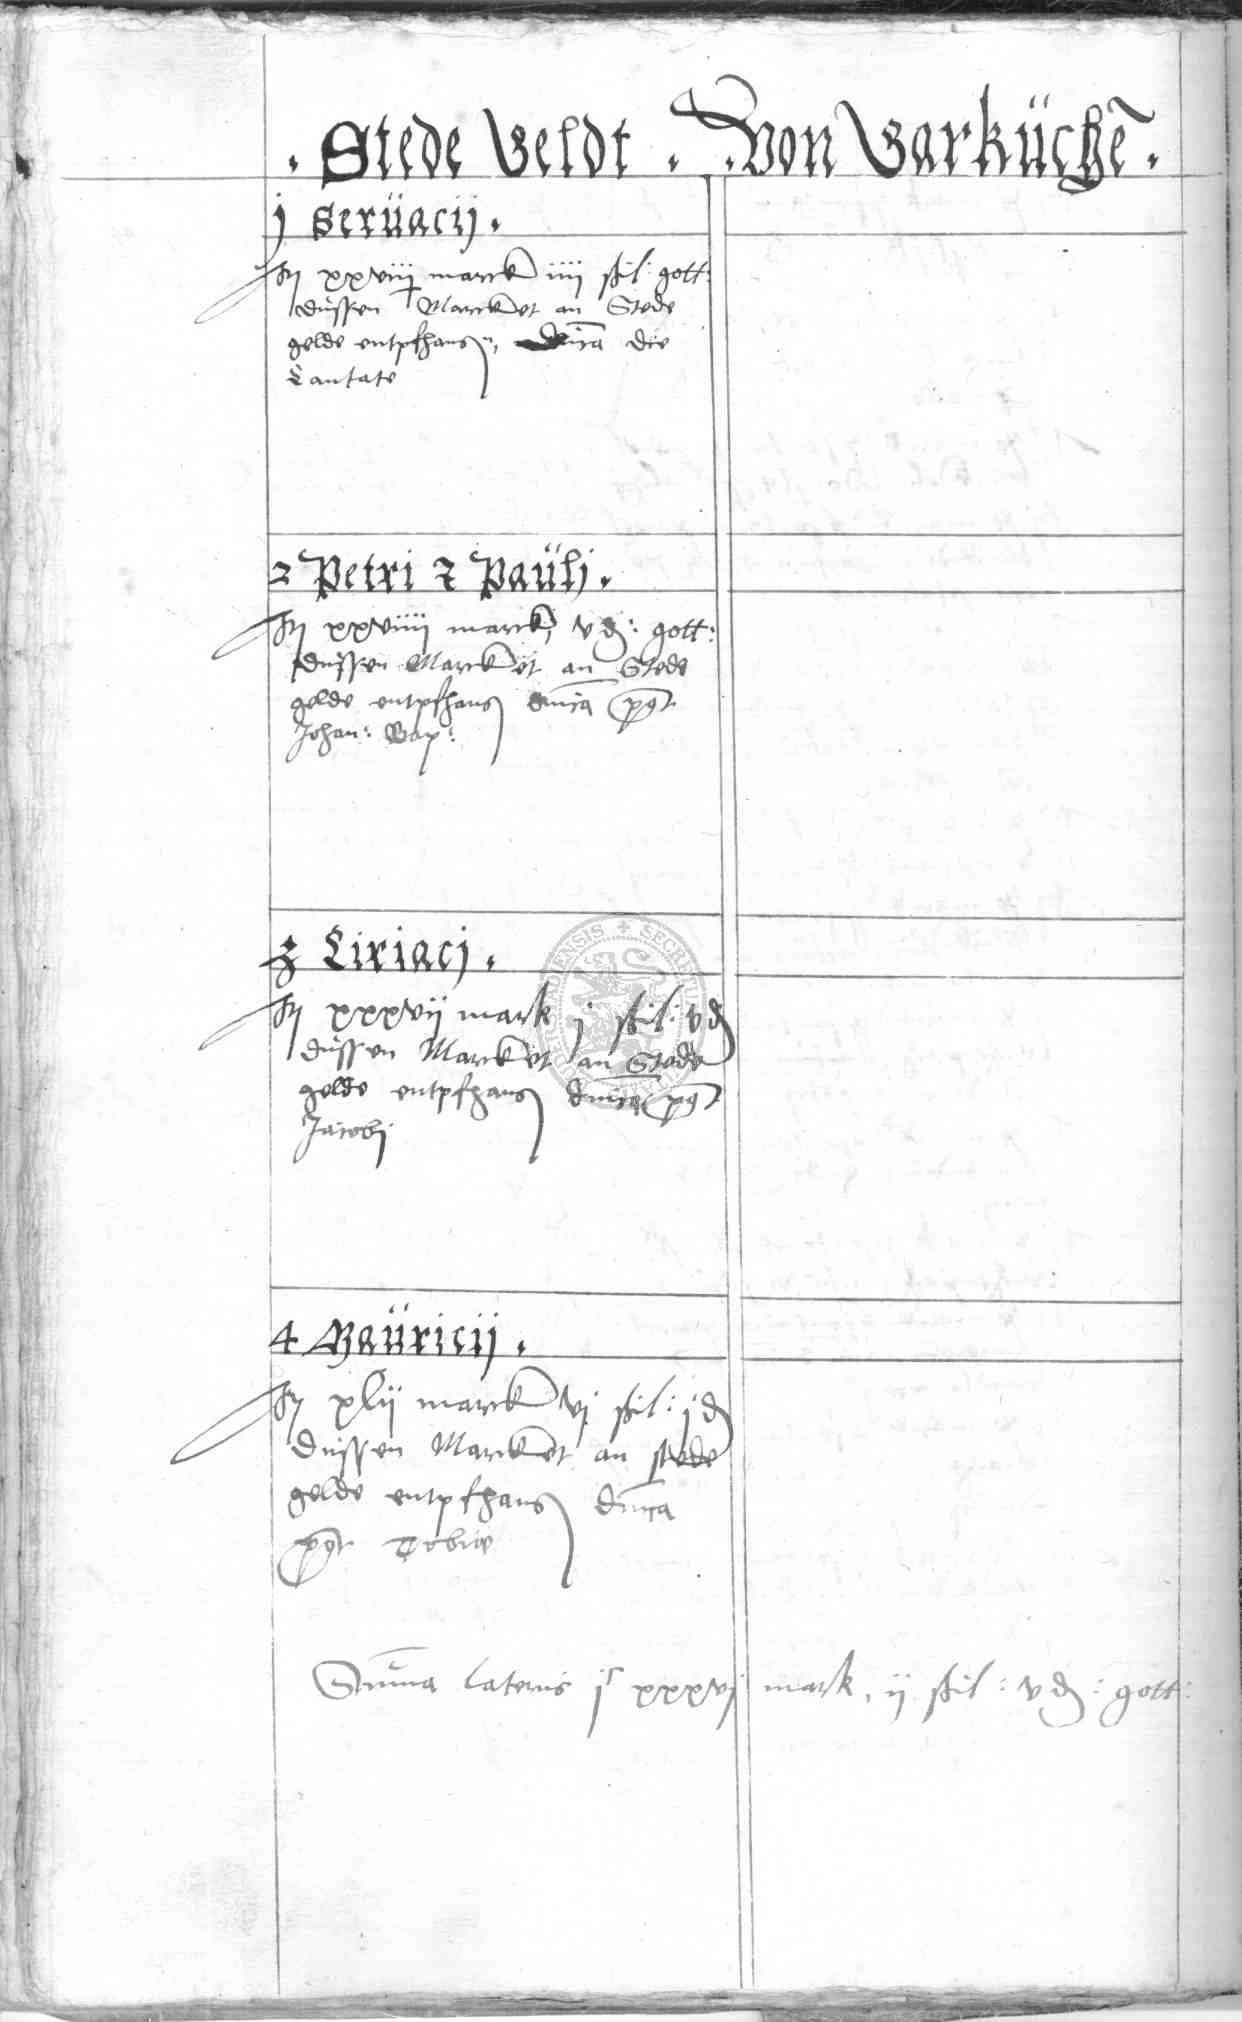 . Stede Geldt . . Von Garküchē .
j Seruacij .
Itẏ xxviiij marck iiij ßil: gott:
dussen Marcket an Stede
gelde entpfhans, dnica die
Cantate
2 Petri z Paülj .
Itẏ xxviiij marck, v d: gott:
dussen Marcket an Stede
gelde entpfhans dnica pꝰt
Johan: Bap:
3 Ciriacj .
Itẏ xxxvij mark j ßil: v d
dussen Marcket an Stede
gelde entpfhans dnica pꝰt
Jacobj
4 Mauricij .
Itẏ xlij marck vj ßil: j d
dussen Marcket an stede
gelde entpfhans dnica
pꝰt Tobiæ
Sūma lateris jᶜ xxxvj mark, ij ßil: v d: gott:
SECRETUM